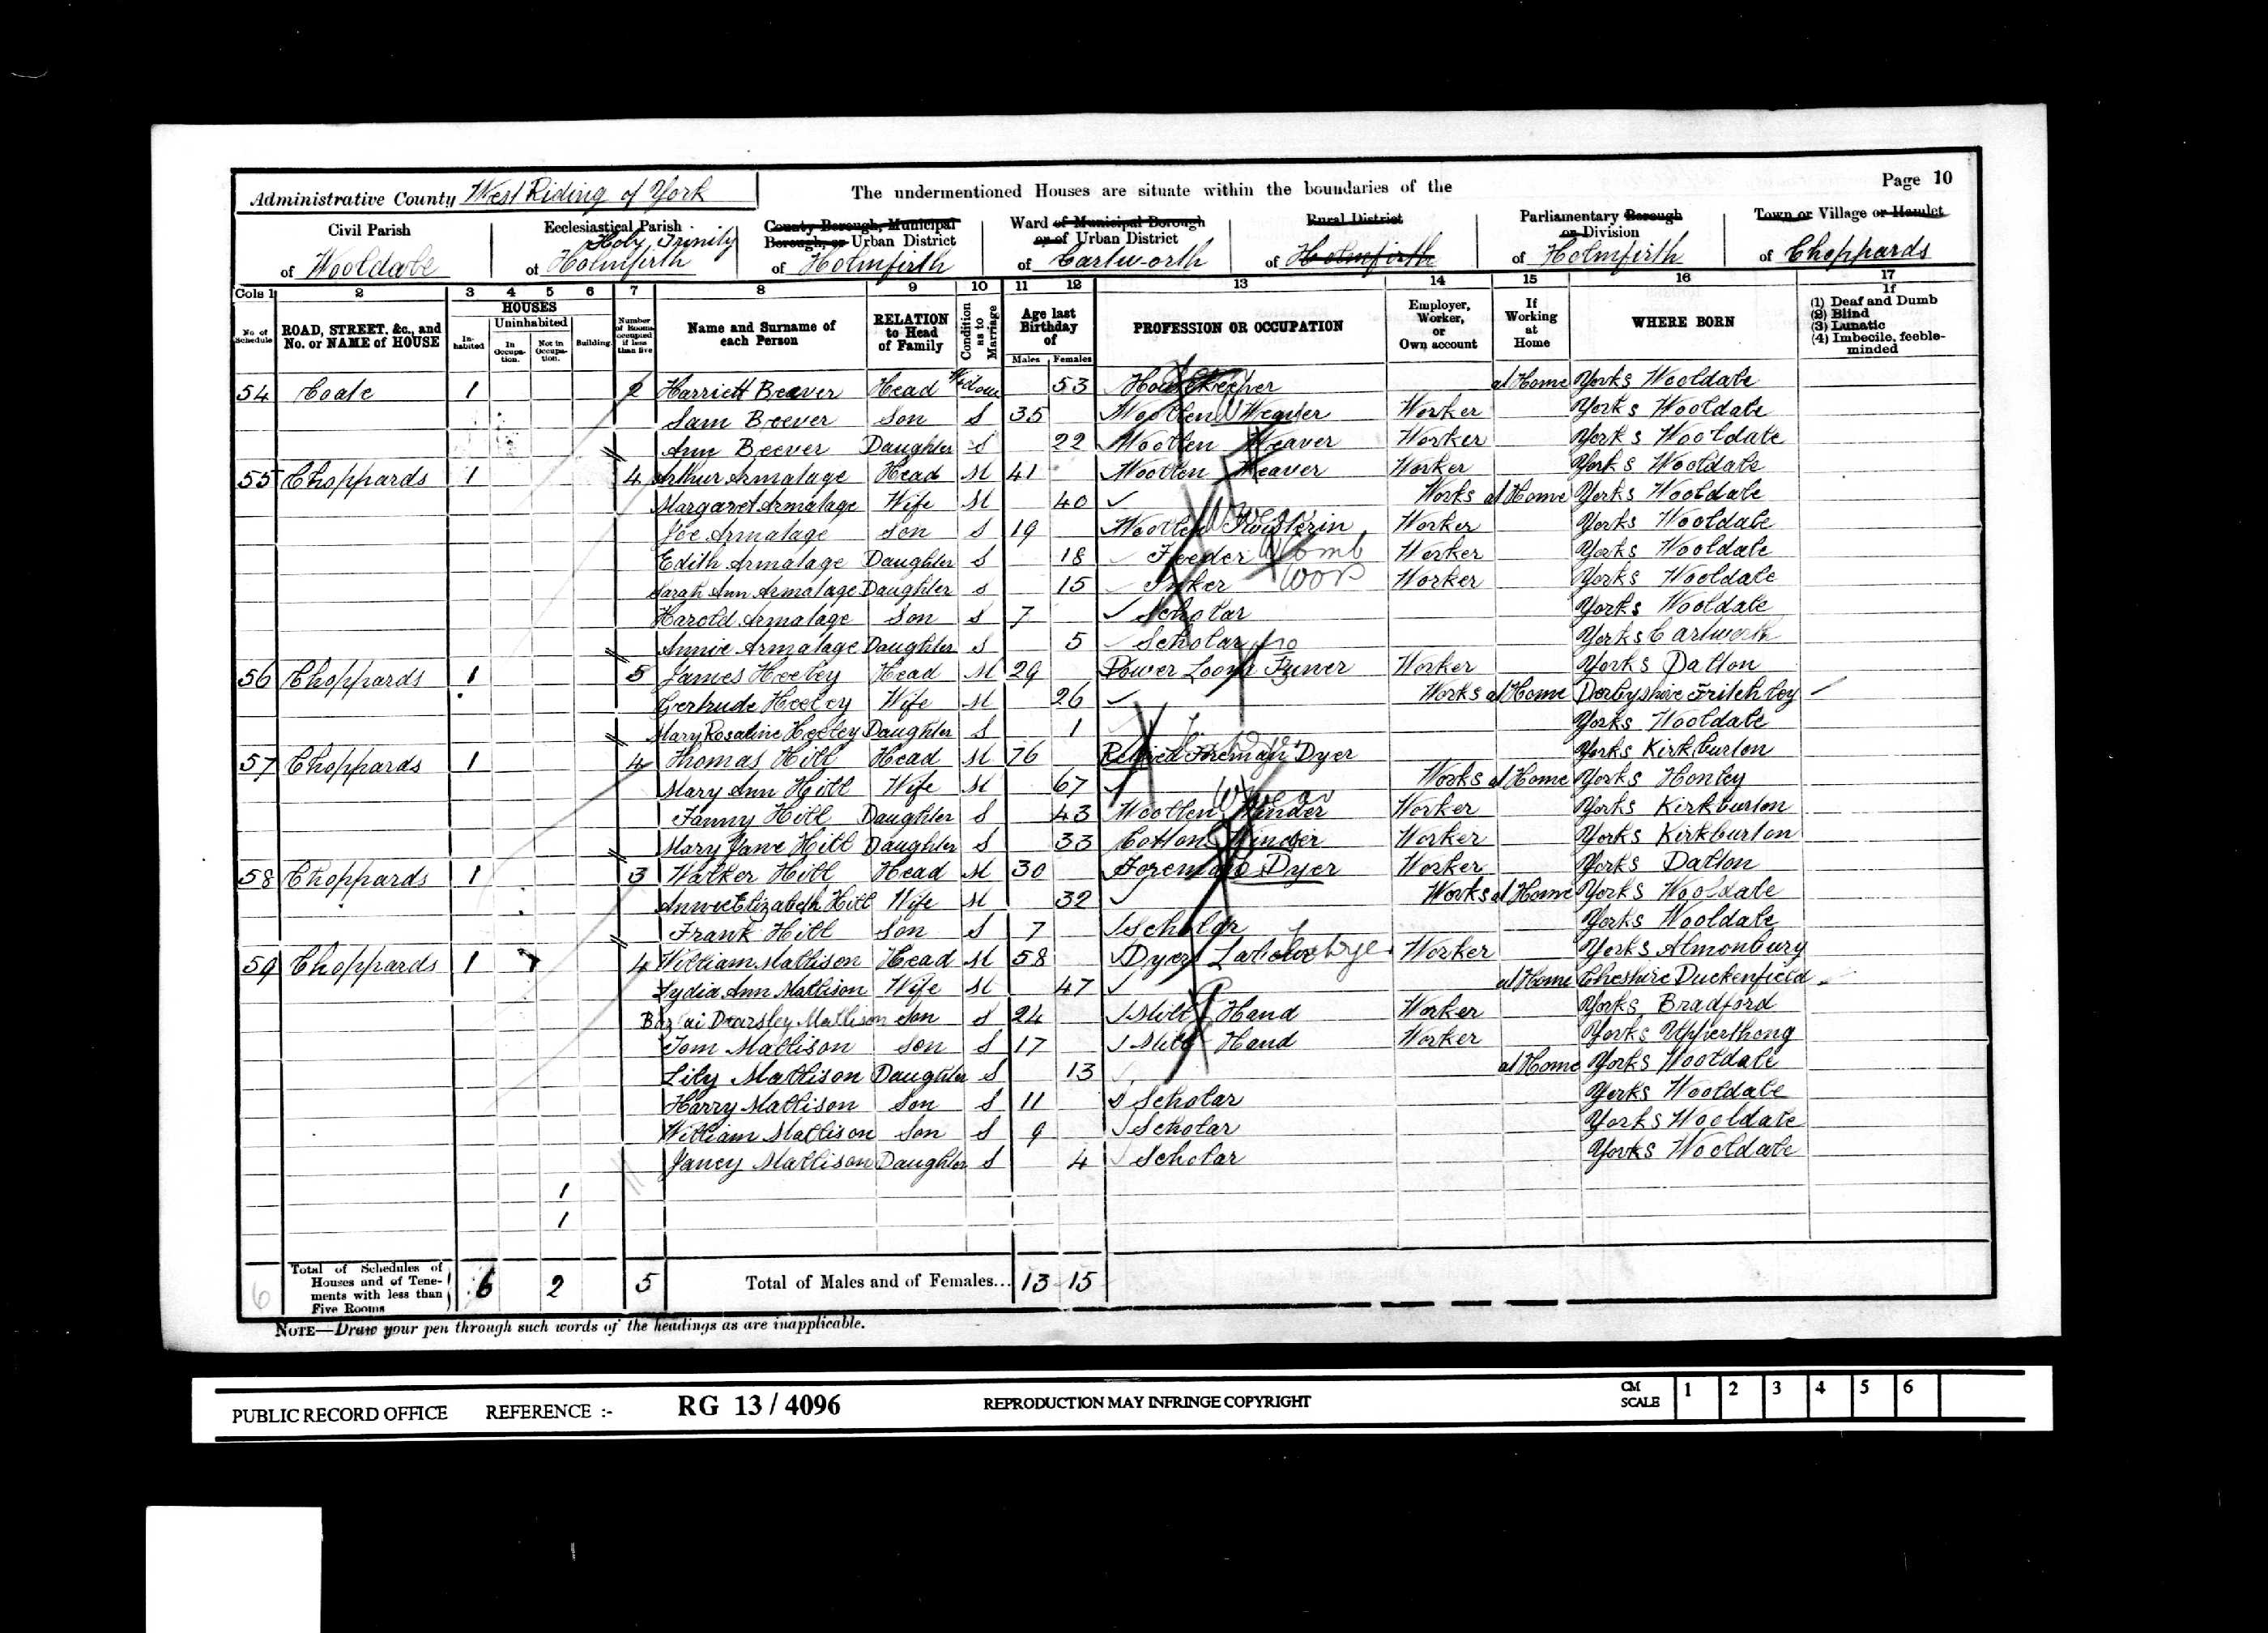 Administrative County West Riding of York The undermentioned Houses are situate within the boundaries of the Page 10
Civil Parish of Wooldale
Ecclesiastical Parish of Holy Trinity Holmfirth
County Borough, Municipal Borough, or Urban District of Holmfirth
Ward of Municipal Borough or of Urban District of Cartworth
Rural District of Holmfirth
Parliamentary Borough or Division of Holmfirth
Town or Village or Hamlet of Choppards
Cols 1 2 3 4 5 6 7 8 9 10 11 12 13 14 15 16 17
No of Schedule
ROAD, STREET, &c., and No. or NAME of HOUSE
HOUSES
Inhabited
Uninhabited
In Occupation.
Not in Occupation.
Building.
Number of Rooms occupied if less than five
Name and Surname of each Person
RELATION to Head of Family
Condition as to Marriage
Age last Birthday of
Males Females
PROFESSION OR OCCUPATION
Employer, Worker, or Own account
If Working at Home
WHERE BORN
If
(1) Deaf and Dumb
(2) Blind
(3) Lunatic
(4) Imbecile, feeble-minded
54 1 2 Harriett Beaver Head Widow 53 Housekeeper at Home Yorks Wooldale
Sam Beever Son S 35 Woollen Weaver Worker Yorks Wooldale
Ann Beever Daughter S 22 Woollen Weaver Worker Yorks Wooldale
55 Choppards 1 4 Arthur Armatage Head M 41 Woollen Weaver Worker Yorks Wooldale
Margaret Armatage Wife M 40 Works at Home Yorks Wooldale
Joe Armatage Son S 19 Woollen Worker Yorks Wooldale
Edith Armatage Daughter S 18 Feeder Worker Yorks Wooldale
Sarah Ann Armatage Daughter S 15 Worker Yorks Wooldale
Harold Armatage Son S 7 Scholar Yorks Wooldale
Annie Armatage Daughter S 5 Scholar Yorks Cartworth
56 Choppards 1 5 James Heeley Head M 29 Power Loom Tuner Worker Yorks Dalton
Gertrude Heeley Wife M 26 Works at Home Derbyshire Fritchley
Mary Rosaline Heeley Daughter S 1 Yorks Wooldale
57 Choppards 1 4 Thomas Hill Head M 76 Retired Foreman Dyer Yorks Kirkburton
Mary Ann Hill Wife M 67 Works at Home Yorks Honley
Fanny Hill Daughter S 43 Woollen Winder Worker Yorks Kirkburton
Mary Jane Hill Daughter S 33 Cotton Winder Worker Yorks Kirkburton
58 Choppards 1 3 Walker Hill Head M 30 Foreman Dyer Worker Yorks Dalton
Annie Elizabeth Hill Wife M 32 Works at Home Yorks Wooldale
Frank Hill Son S 7 Scholar Yorks Wooldale
59 Choppards 1 4 William Mallison Head M 58 Dyers Labourer Worker Yorks Almonbury
Lydia Ann Mallison Wife M 47 at Home Cheshire Duckenfield
Dearsley Mallison Son S 24 Mill Hand Worker Yorks Bradford
Tom Mallison Son S 17 Mill Hand Worker Yorks Upperthong
Lily Mallison Daughter S 13 at Home Yorks Wooldale
Harry Mallison Son S 11 Scholar Yorks Wooldale
William Mallison Son S 9 Scholar Yorks Wooldale
Janey Mallison Daughter S 4 Scholar Yorks Wooldale
1
1
6 Total of Schedules of Houses and of Tenements with less than Five Rooms 6 2 5 Total of Males and of Females... 13 15
NOTE—Draw your pen through such words of the headings as are inapplicable.
PUBLIC RECORD OFFICE REFERENCE :- RG 13 / 4096 REPRODUCTION MAY INFRINGE COPYRIGHT CM SCALE 1 2 3 4 5 6